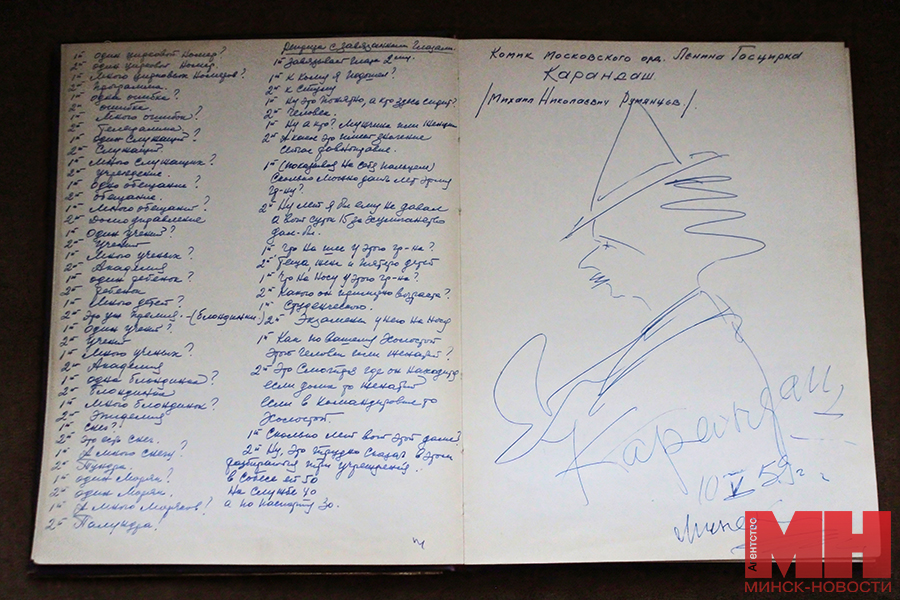 1й один цирковой номер?
2й один цирковой номер.
1й Много цирковых номеров?
2й Программа.
1й одна ошибка?
2й ошибка.
1й Много ошибок?
2й Телеграмма.
1й один служащий?
2й Служащий
1й Много служащих?
2й учреждение.
1й одно обещание?
2й обещание.
1й Много обещаний?
2й Домоуправление
1й один ученый?
2й Ученый
1й Много ученых?
2й Академия
1й один ребенок?
2й ребенок
1й Много детей?
2й Это уж премия - (блондинки)
1й один ученый?
2й ученый
1й Много ученых?
2й Академия
1й одна блондинка?
2й блондинка
1й Много блондинок?
2й Эпидемия
1й Снег?
2й это есть снег.
1й А много снегу?
2й Тундра.
1й один моряк?
2й один моряк.
1й А много моряков?
2й Полундра!
Реприза с завязанными глазами.
1й Завязывает глаза 2му.
1й к кому я подошел?
2й к стулу
1й Ну это понятно, а кто здесь сидит?
2й Человек.
1й Ну а кто? Мужчина или женщина
2й А какое это имеет значение
сейчас равноправие.
1й (показывая на себя пальцем)
Сколько можно дать лет этому
гр-ну?
2й Ну лет я бы ему не давал
а вот суток 15 за хулиганство
дал-бы.
1й Что на шее у этого гр-на?
2й Теща жена и пятеро детей
1й Что на носу у этого гр-на?
2й Какого он примерно возраста?
1й Студенческого.
2й Экзамены у него на носу
1й Как по вашему холостой
этот человек или женатый?
2й Это смотря где он находится
если дома то женатый
если в командировке то
холостой.
1й Сколько лет вот этой даме?
2й Ну, это трудно сказать в этом
разбираются три учреждения.
в собесе ей 50
на службе 40
а по паспорту 30.
Комик Московского орд. Ленина Госцирка
Карандаш.
/Михаил Николаевич Румянцев/.
Карандаш
10 V 59 г.
Минск
Агентство
МН
МИНСК-НОВОСТИ